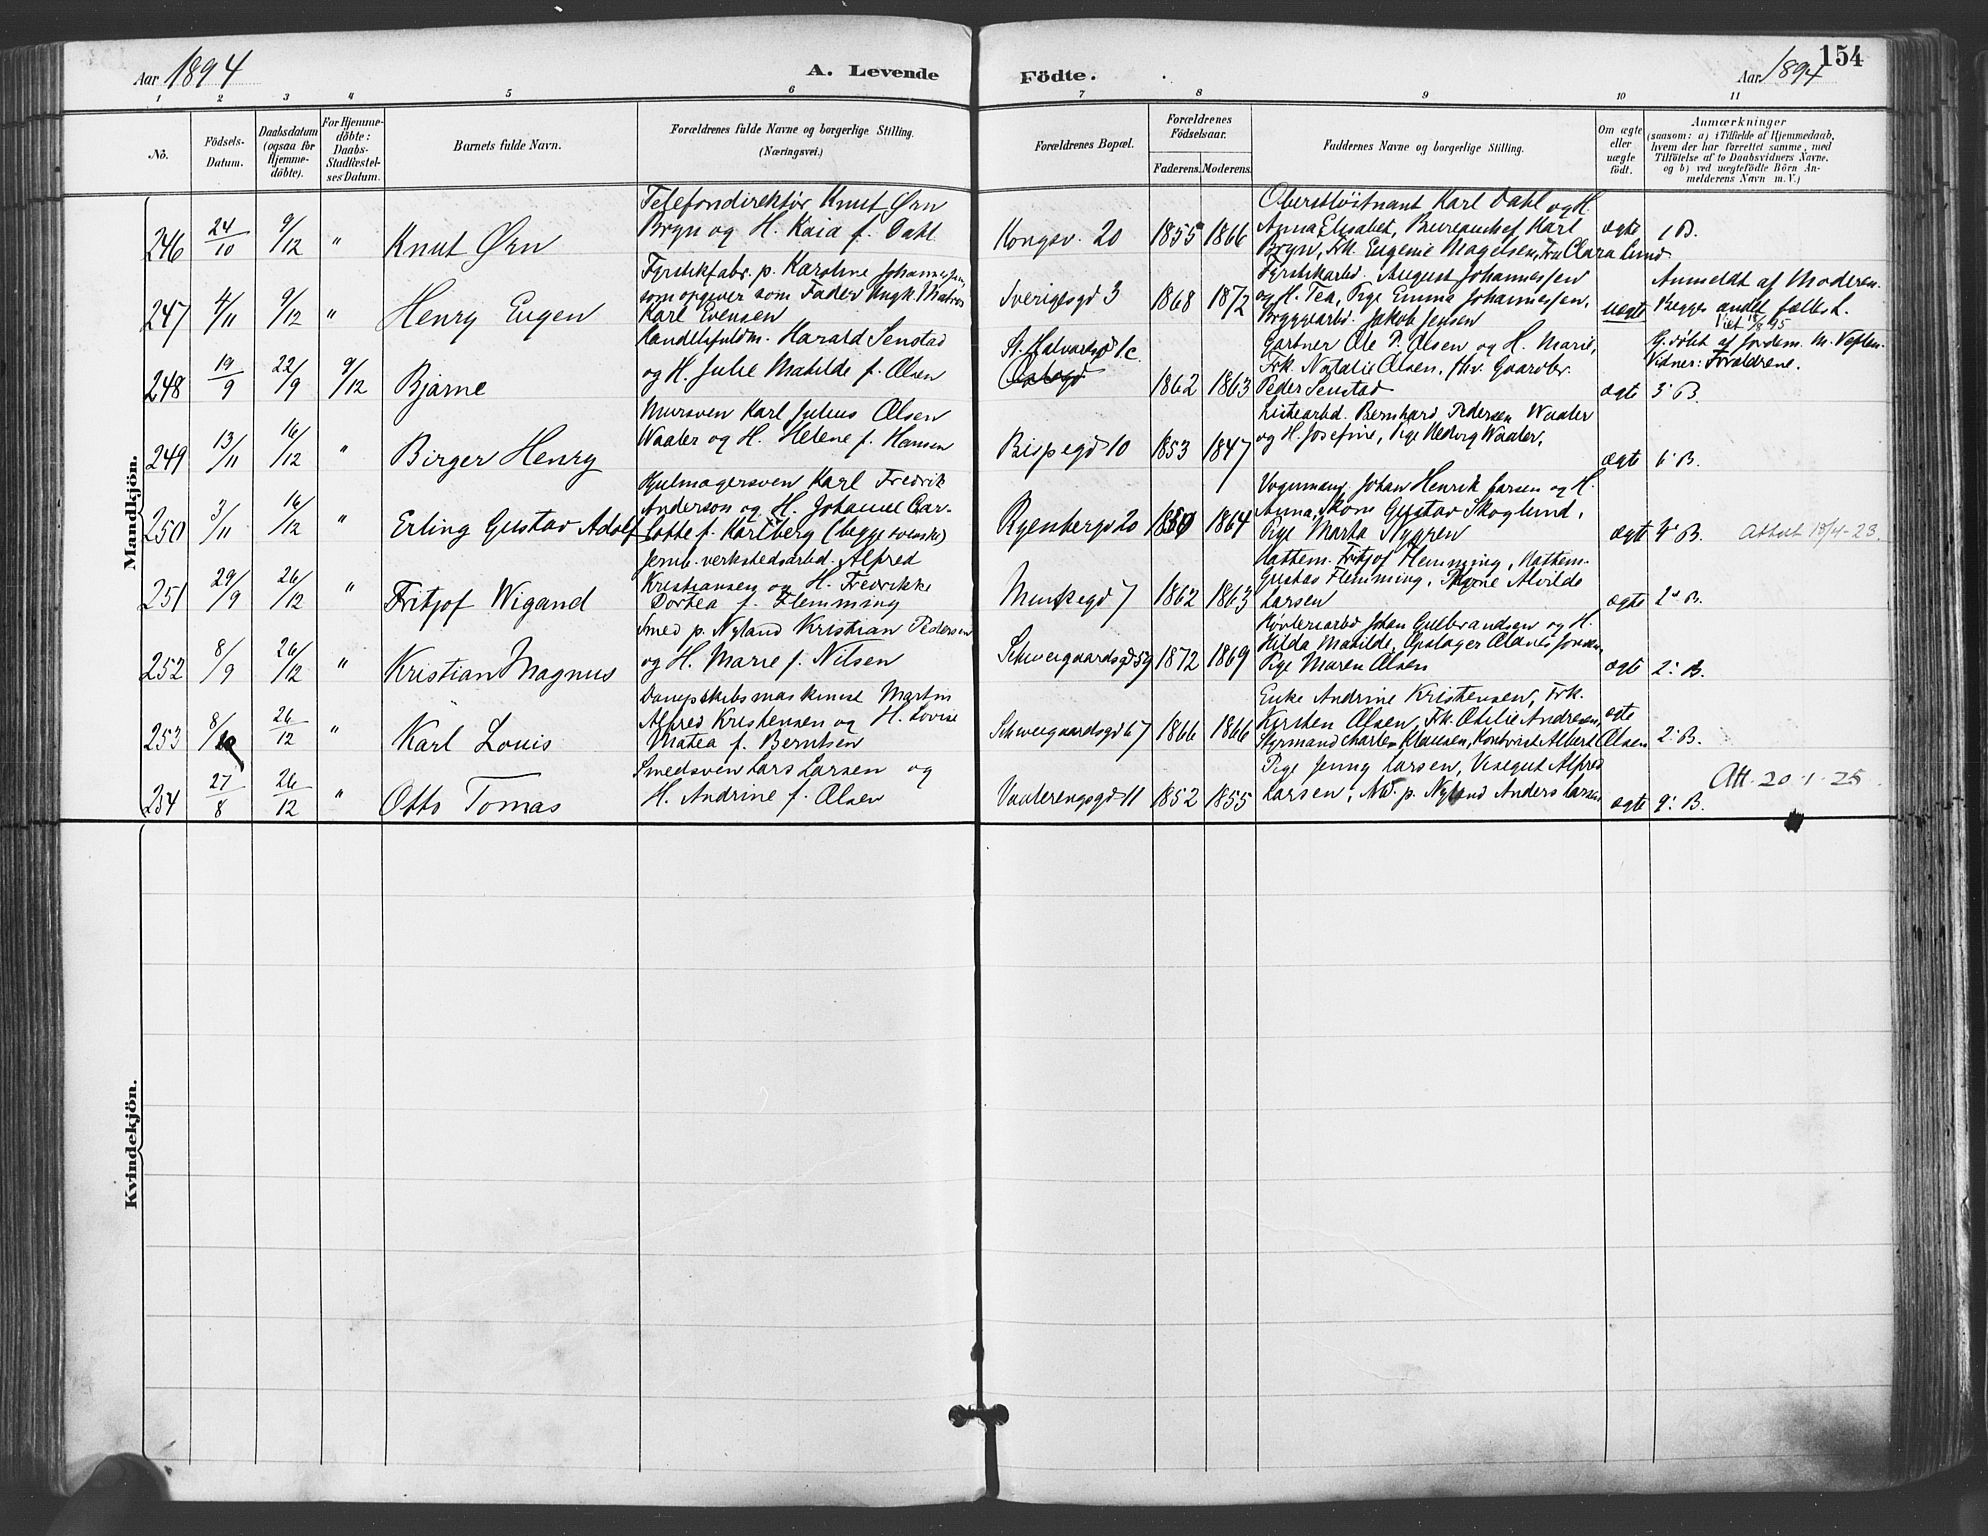 Aar 1894
A. Levende
Födte.
Aar 1894
154
1 2 3 4 5 6 7 8 9 10 11
No.
Födsels-
Datum.
Daabsdatum
(ogsaa for
Hjemme-
döbte).
For Hjemme-
döbte:
Daabs-
Stadfæstel-
ses Datum.
Barnets fulde Navn.
Forældrenes fulde Navne og borgerlige Stilling.
(Næringsvei.)
Forældrenes Bopæl.
Forældrenes
Födselsaar.
Faderens. Moderens.
Faddernes Navne og borgerlige Stilling.
Om ægte
eller
uægte
födt.
Anmærkninger
(saasom: a) i Tilfælde af Hjemmedaab,
hvem der har forrettet samme, med
Tilföielse af to Daabsvidners Navne.
og b) ved uægtefödte Börn An-
melderens Navn m. V.)
Mandkjön.
246 24/10 9/12 "
Knut Ørn
Telefondirektør Knut Ørn
Bryn og H. Kaia f. Dahl
Kongsv. 20 1855 1866
Oberstløitnant Karl Dahl og H.
Anna Elisabet, Bureauchef Karl
Bryn, Frk. Eugenie Magelsen, Fru Clara Lund
ægte
1 B.
247 4/11 9/12 "
Henry Eugen
Fyrstikfabr. p. Karoline Johannessen,
som opgiver som Fader Ungk. Matros
Karl Evensen
Sverigesgd 3 1868 1872
Fyrstikarbd. August Johannessen
og H. Tea, Pige Emma Johannessen,
Bryggearbd. Jakob Jensen
uægte
Anmeldt af Moderen.
Begges andet fælles b.
Viet 18/8 95
248 19/9 22/9 9/12
Bjarne
Handelsfuldm. Harald Senstad
og H. Julie Matilde f. Olsen
St. Halvardsgd 1c.
Oslogd
1862 1863
Gartner Ole P. Olsen og H. Marie,
Frk. Natalie Olsen, fhv. Gaardbr.
Peder Senstad
ægte
Hj.døbt af Jordem. M. Veflen.
Vidner: Forældrene.
3' B.
249 13/11 16/12 "
Birger Henry
Mursven Karl Julius Olsen
Waaler og H. Helene f. Hansen
Bispegd 10 1853 1847
Listearbd. Bernhard Pedersen Waaler
og H. Josefine, Pige Hedvig Waaler,
ægte
6' B.
250 3/11 16/12 "
Erling Gustav Adolf
Hjulmagersven Karl Fredrik
Anderson og H. Johanne Car-
lotte f. Karlberg (begge svenske)
Ryenbergd 20 1860 1864
Vognmand Johan Henrik Larsen og H.
Anna, Skom. Gustav Skoglund,
Pige Marta Nygren
ægte
4' B.
Attest 18/4-23.
251 29/9 26/12 "
Fritjof Wigand
Jernb. verkstedsarbd. Alfred
Kristiansen og H. Fredrikke
Dortea f. Flemming
Munkegd 7 1862 1863
Hattem. Fritjof Flemming, Hattem.
Gustav Flemming, Pigerne Alvilde
Larsen
ægte
2' B.
252 8/9 26/12 "
Kristian Magnus
Smed p. Nyland Kristian Pedersen
og H. Marie f. Nilsen
Schweigaardsgd 59 1872 1869
Høvleriarbd Johan Gulbrandsen og H.
Hilda Matilde, Opslager Olanes
Pige Maren Olsen
ægte
2' B.
253 8/10 26/12 "
Karl Louis
Dampskibsmaskinist Martin
Alfred Kristensen og H. Lovise
Matea f. Berntsen
Schweigaardsgd 67 1866 1866
Enke Andrine Kristensen, Frk.
Kirsten Olsen, Frk. Otilie Andresen,
Styrmand Charles Klausen, Kontorist Albert Olsen
ægte
2' B.
254 27/8 26/12 "
Otto Tomas
Smedsven Lars Larsen og
H. Andrine f. Olsen
Vaalerengsgd 11 1852 1855
Pige Jenny Larsen, Visegut Alfred
Larsen, Arb. p. Nyland Anders Larsen
ægte
9' B.
Att. 20-1-25
Kvindekjön.